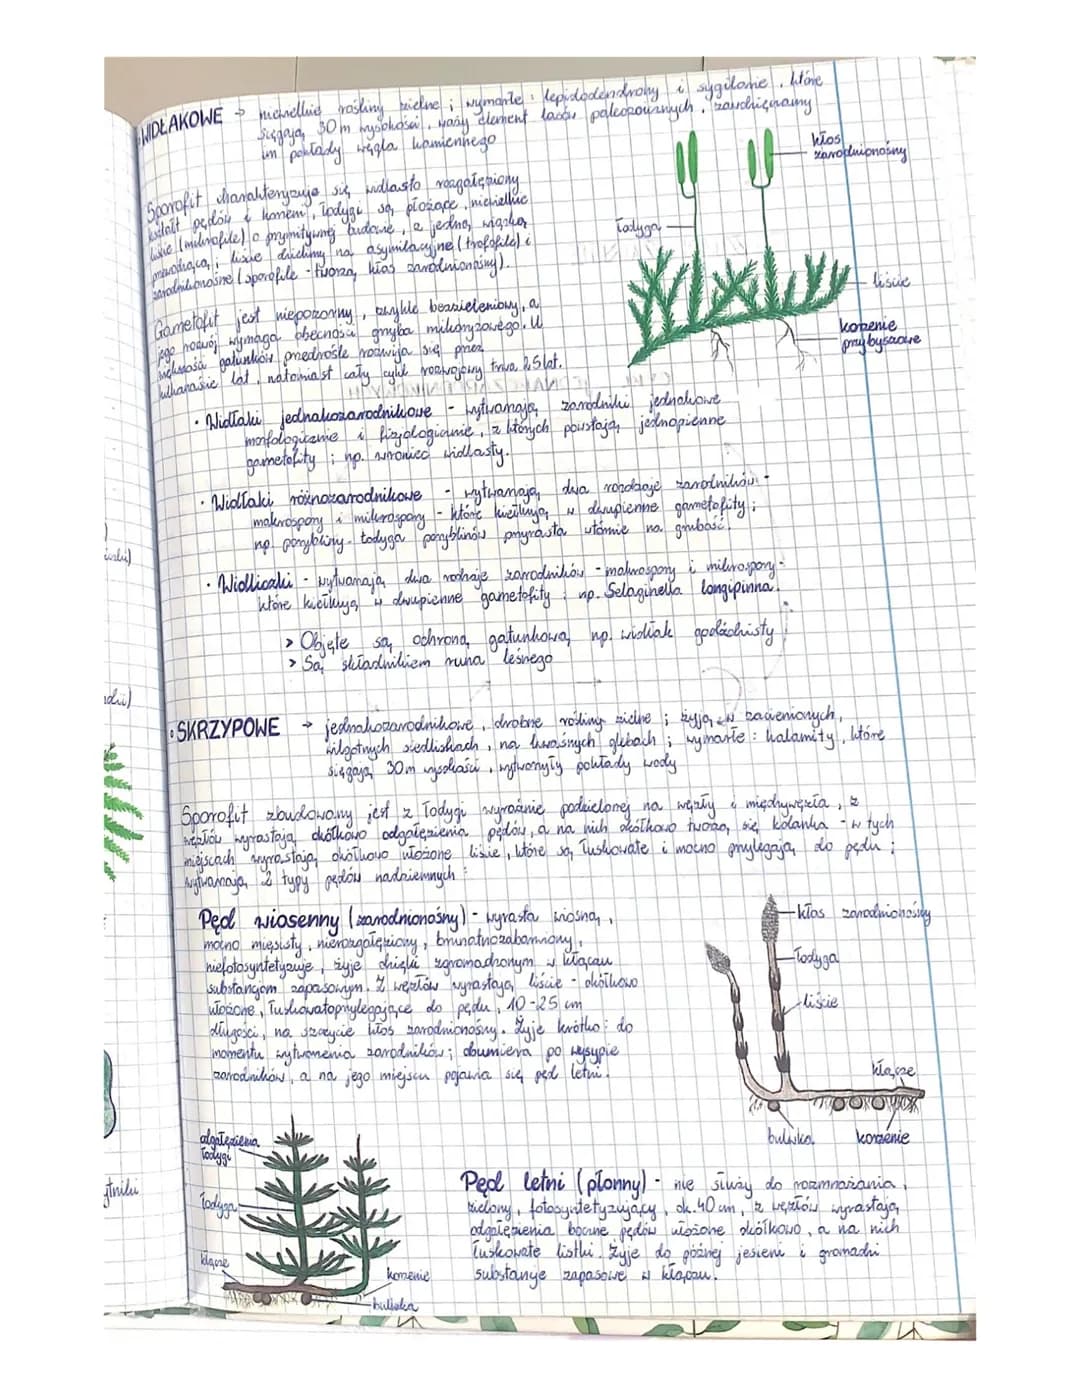 WIDŁAKOWE → niewielkie rośliny zielne ; wymarłe : lepidodendrony i sygilarie, które
sięgają 30 m wysokości, ważny element lasów paleozoicznych, zawdzięczamy
im pokłady węgla kamiennego
kłos
zarodnionośny
łodyga
liście
korzenie
przybyszowe
Sporofit charakteryzuje się widlasto rozgałęziony
kształt pędów i korzeni, łodygi są płożące, niewielkie
liście (mikrofile) o prymitywnej budowie, z jedną wiązką
przewodzącą ; liście dzielimy na asymilacyjne (trofofile) i
zarodnionośne (sporofile - tworzą kłos zarodnionośny).
Gametofit jest niepozorny, zwykle bezzieleniowy, a
jego rozwój wymaga obecności grzyba mikoryzowego. U
większości gatunków przedrośle rozwija się przez
kilkanaście lat, natomiast cały cykl rozwojowy trwa 25 lat.
• Widłaki jednakozarodnikowe - wytwarzają zarodniki jednakowe
morfologicznie i fizjologicznie, z których powstają jednopienne
gametofity ; np. wroniec widlasty.
• Widłaki różnozarodnikowe - wytwarzają dwa rodzaje zarodników -
makrospory i mikrospory - które kiełkują w dwupienne gametofity ;
np. porybliny. łodyga poryblinów przyrasta wtórnie na grubość.
• Widliczki - wytwarzają dwa rodzaje zarodników - makrospory i mikrospory -
które kiełkują w dwupienne gametofity ; np. Selaginella longipinna.
> Objęte są ochroną gatunkową np. widłak goździsty
> Są składnikiem runa leśnego
• SKRZYPOWE → jednakozarodnikowe, drobne rośliny zielne ; żyją w zacienionych,
wilgotnych siedliskach, na kwaśnych glebach ; wymarłe : kalamity, które
sięgają 30 m wysokości, wytworzyły pokłady wody
Sporofit zbudowany jest z łodygi wyraźnie podzielonej na węzły i międzywęźla, z
węzłów wyrastają okółkowo odgałęzienia pędów, a na nich okółkowo tworzą się kolanka - w tych
miejscach wyrastają okółkowo ułożone liście, które są łuskowate i mocno przylegają do pędu ;
wytwarzają 2 typy pędów nadziemnych :
Pęd wiosenny (zarodnionośny) - wyrasta wiosną,
mocno mięsisty, nierozgałęziony, brunatnozabarwiony,
niefotosyntetyzuje, żyje dzięki zgromadzonym w kłączu
substancjom zapasowym. Z węzłów wyrastają liście - okółkowo
ułożone, łuskowatoprzylegające do pędu, 10-25 cm
długości, na szczycie kłos zarodnionośny. Żyje krótko : do
momentu wytworzenia zarodników ; obumiera po wysypie
zarodników, a na jego miejscu pojawia się pęd letni.
kłos zarodnionośny
łodyga
liście
kłącze
bulwka
korzenie
odgałęzienia
łodygi
łodyga
kłącze
korzenie
bulwka
Pęd letni (płonny) - nie służy do rozmnażania,
zielony, fotosyntetyzujący, ok. 40 cm, z węzłów wyrastają
odgałęzienia boczne pędów ułożone okółkowo, a na nich
łuskowate listki. Żyje do późnej jesieni i gromadzi
substancje zapasowe w kłączu.